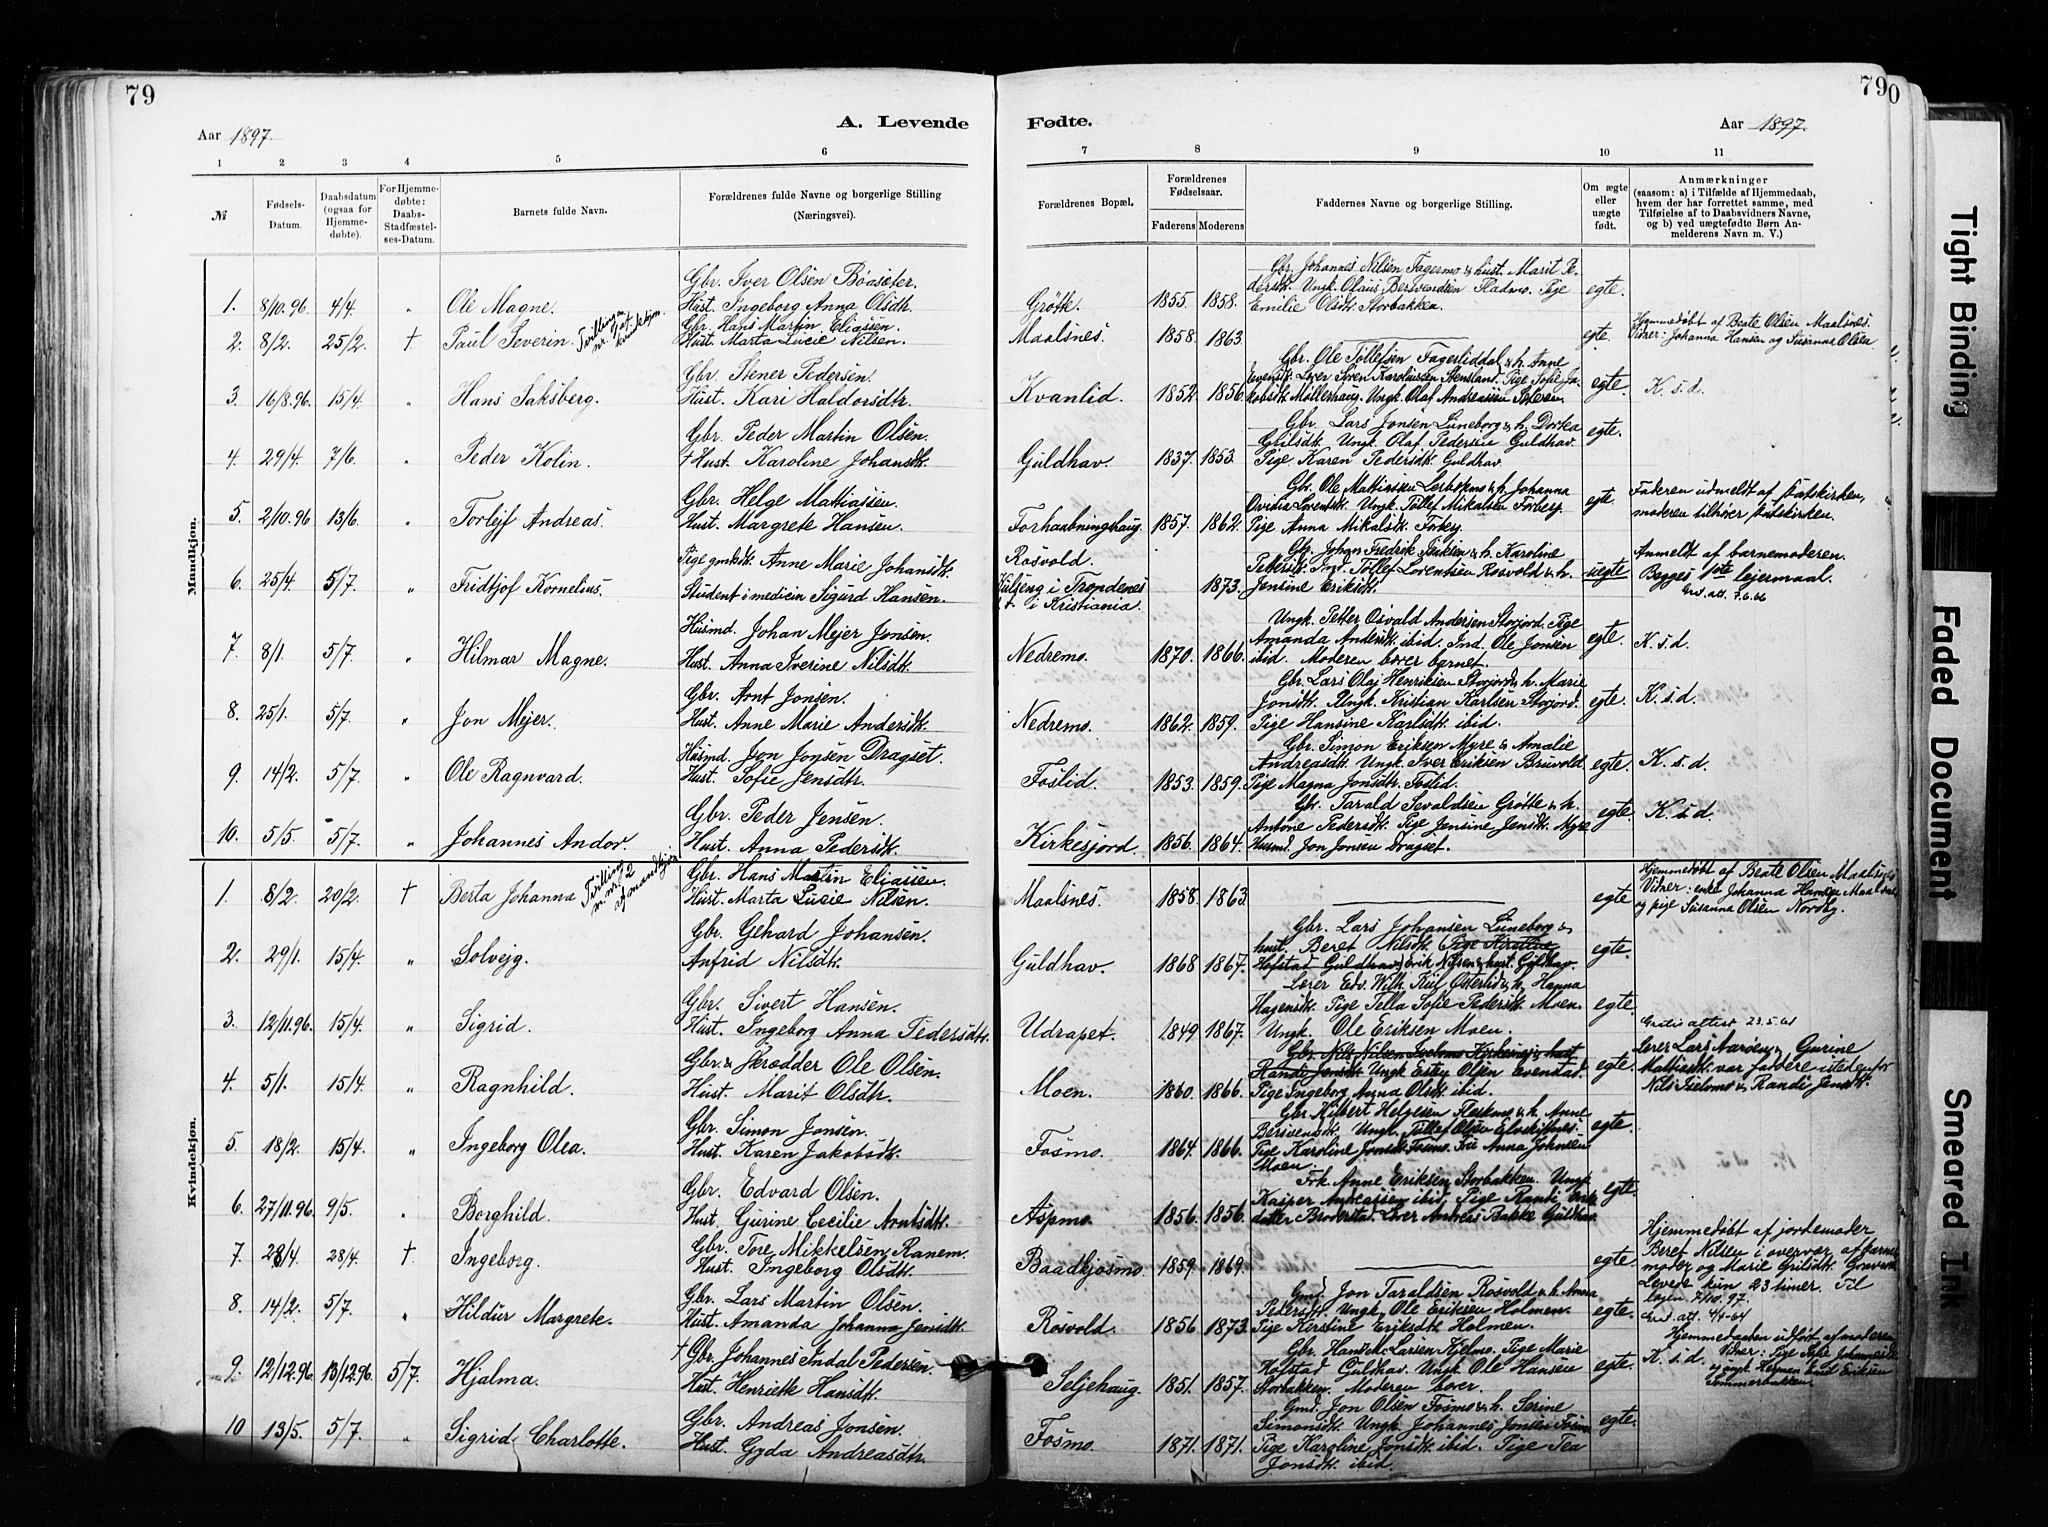 79
79
0
Aar 1897.
A. Levende
Fødte.
Aar 1897.
1 2 3 4 5 6 7 8 9 10 11
№
Fødsels-Datum.
Daabsdatum (ogsaa for Hjemme-døbte).
For Hjemme-døbte: Daabs-Stadfæstel-ses-Datum.
Barnets fulde Navn.
Forældrenes fulde Navne og borgerlige Stilling (Næringsvei).
Forældrenes Bopæl.
Forældrenes Fødselsaar.
Faderens Moderens
Faddernes Navne og borgerlige Stilling.
Om ægte eller uægte født.
Anmærkninger
(saasom: a) i Tilfælde af Hjemmedaab,
hvem der har forrettet samme, med
Tilføielse af to Daabsvidners Navne,
og b) ved uægtefødte Børn An-
melderens Navn m. V.)
Mandkjøn.
1. 8/10.96. 4/4. „ Ole Magne. Gbr. Iver Olsen Bøasæter. Hust. Ingeborg Anna Olsdtr. Grøtte. 1855. 1858.
Gbr. Johannes Nilsen Fagermo & hust. Marit Pe-
dersdt. Ungk. Olaus Bersvendsen Fladmo. Pige
Emilie Olsdt. Storbakken. egte.
2. 8/2. 25/2. † Paul Severin. Tvilling m. nr. 1 af kvindekjøn. Gbr. Hans Martin Eliassen. Hust. Marta Lucie Nilsen. Maalsnes. 1858. 1863. egte.
Hjemmedøbt af Beate Olsen Maalsnes.
Vidner: Johanna Hansen og Susanna Olsen.
3. 16/8.96. 15/4. „ Hans Saksberg. Gbr. Stener Pedersen. Hust. Kari Haldorsdtr. Kvanlid. 1852. 1856.
Gbr. Ole Tollefsen Fagerliddal & h. Anne
Evensdt. Lærer Søren Karolussen Stensland. Pige Sofie Ja-
kobsdt. Møllerhaug. Ungk. Olaf Andreassen egte. K. s. d.
4. 29/4. 7/6. „ Peder Kolin. Gbr. Peder Martin Olsen. † Hust. Karoline Johansdt. Guldhav. 1837. 1853.
Gbr. Lars Jonsen Lüneborg & h. Dorka
Ungk. Olaf Pedersen Guldhav.
Pige Karen Pedersdt. Guldhav. egte.
5. 2/10.96 13/6. „ Torlejf Andreas. Gbr. Helge Mattiassen. Hust. Margrete Hansen. Forhaabningshaug. 1857. 1862.
Gbr. Ole Mattiassen & h. Johanna
Ovidia Lorentsdt. Ungk. Tollef Mikalsen Forberg
Pige Anna Mikalsdt. egte.
Faderen udmeldt af statskirken,
moderen tilhører statskirken.
6. 25/4. 5/7. „ Fridtjof Kornelius. Pige Anne Marie Johansdt. Student i medicin Sigurd Hansen. Rosvold i Trondenes i Kristiania. 1873.
Gbr. Johan Fredrik Isaksen & h. Karoline
Pettersdt. Ind. Tollef Lorentsen Rosvold & h.
Jensine Eriksdt. uegte
Anmeldt af barnemoderen.
Begges 1ste lejermaal.
7. 8/1. 5/7. „ Hilmar Magne. Husmd. Johan Mejer Jonsen. Hust. Anna Iverine Nilsdt. Nedremo. 1870. 1866.
Ungk. Petter Osvald Andersen Storjord. Pige
Amanda Andersdt. ibid. Ind. Ole Jonsen
ibid. Moderen bærer barnet. egte. K. s. d.
8. 25/1. 5/7. „ Jon Mejer. Gbr. Arnt Jonsen. Hust. Anne Marie Andersdt. Nedremo. 1862. 1859.
Gbr. Lars Olaj Henriksen Storjord & h. Marie
Jonsdt. Ungk. Kristian Karlsen Storjord.
Pige Hansine Karlsdt. ibid. egte. K. s. d.
9. 14/2. 5/7. „ Ole Ragnvard. Husmd Jon Jonsen Dragset. Hust. Sofie Jensdtr. Foslid. 1853. 1859.
Gbr. Simon Eriksen Myre & Amalie
Andreasdt. Ungk. Iver Eriksen Bruvold.
Pige Magna Jonsdt. Foslid. egte. K. s. d.
10. 5/5. 5/7. „ Johannes Andor. Gbr. Peder Jensen. Hust. Anna Pedersdt. Kirkesjord. 1856. 1864.
Gbr. Tarald Sevaldsen Grøtte & h.
Antone Pedersdt. Pige Jensine Jensdt. Myre
Husmd. Jon Jonsen Dragset. egte. K. s. d.
Kvindekjøn.
1. 8/2. 20/2. † Berta Johanna Tvilling m. nr. 2 af mandkjøn Gbr. Hans Martin Eliassen. Hust. Marta Lucie Nilsen. Maalsnes. 1858. 1863 egte
Hjemmedøbt af Beate Olsen Maalsnes
Vidner: enke Johanna Hansen Maalsnes
og pige Susanna Olsen Nordby.
2. 29/1. 15/4. „ Solvejg. Gbr. Gehard Johansen. Anfrid Nilsdt. Guldhav. 1868 1867.
Gbr. Lars Johansen Lüneborg &
hust. Beret Nilsdt. Pige Kirstine
Hofstad Guldhav. Erik Nilsen & hust. Guldhav. egte.
3. 12/11.96. 15/4. „ Sigrid. Gbr. Sivert Hansen. Hust. Ingeborg Anna Pedersdt. Udrapet. 1849 1867.
Lærer Edv. Wilh. Østerlid & h. Hanna
Hagensdt. Pige Tella Sofie Pedersdt. Moen.
Ungk. Ole Eriksen Moen. egte.
Gratis attest 23.5.61
4. 5/1. 15/4. „ Ragnhild. Gbr. & Skrædder Ole Olsen. Hust. Marit Olsdtr. Moen. 1860. 1866.
Gbr. Nils Nilsen Iselomo Kirkesnes & hust.
Randi Jensdt. Ungk. Esten Olsen Evenstad.
Pige Ingeborg Anna Olsdt. ibid. egte.
Lærer Lars Aarøen & Gurine
Mattisdt. var faddere istedenfor
Nils Iselomo & Randi Jensdt.
5 18/2. 15/4. „ Ingeborg Olea. Gbr. Simon Jonsen. Hust. Karen Jakobsdt. Fosmo. 1864. 1866.
Gbr. Hilbert Helgesen & h. Anne
Bersvendsdt. Ungk. Tollef Olsen Elvskiftnes.
Pige Karoline Jonsdt. Fosmo. Anna Johnsen
Moen. egte.
6. 27/11.96. 9/5. „ Borghild. Gbr. Edvard Olsen. Hust. Gurine Cecilie Arntsdt. Aspmo. 1856. 1856.
Frk. Anne Eriksen Storbakken. Ungk.
Kasper Andreassen ibid. Pige Randi
datter Broderstad. Lærer Andreas Bakke Guldhav. egte.
7. 28/4. 28/4. † Ingeborg. Gbr. Tore Mikkelsen Ranem. Hust. Ingeborg Olsdt. Baadkjosmo. 1859. 1869. egte.
Hjemmedøbt af jordemoder
Beret Nilsen i overvær af barne-
moder og Marie
Levede kun 23 timer.
8. 14/2. 5/7. „ Hildur Margrete. Gbr. Lars Martin Olsen. Hust. Amanda Johanna Jensdt. Rosvold. 1856 1873.
Gmd. Jon Taraldsen Rosvold & h. Anna
Pedersdt. Ungk. Ole Eriksen Holmen.
Pige Kerstine Eriksdt. Holmen. egte.
9. 12/12.96 13/12.96 5/7. Hjalma. † Gbr. Johannes Indal Pedersen. Hust. Henriette Hansdt. Seljehaug. 1851. 1857.
Gbr. Hans M. Larsen Kjelmo. Pige Marie
Hofstad Guldhav. Ungk. Ole Hansen
Storbakken. Moderen bærer. egte. K. s. d.
Hjemmedaaben udført af moderen
Vidner: Pige Sofie
Sommerbakken.
10 13/5. 5/7. „ Sigrid Charlotte. Gbr. Andreas Jonsen. Hust. Gyda Andreasdtr. Fosmo. 1871. 1871.
Gmd. Jon Olsen Fosmo & h. Serine
Simonsdt. Ungk. Johannes Jonsen Fosmo
Pige Karoline Jonsdt. ibid. Pige Tea
Jonsdt. ibid. egte.
Tight Binding
Faded Document
Smeared Ink